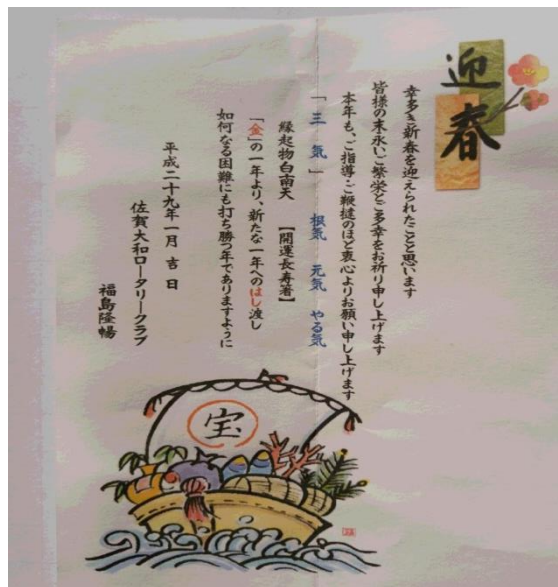 迎春
幸多き新春を迎えられたことと思います
皆様の末永いご繁栄とご多幸をお祈り申し上げます
本年も、ご指導・ご鞭撻のほど衷心よりお願い申し上げます
「三気」 根気 元気 やる気
縁起物白南天 【開運長寿箸】
「金」の一年より、新たな一年へのはし渡し
如何なる困難にも打ち勝つ年でありますように
平成二十九年一月 吉日
佐賀大和ロータリークラブ
福島隆暢
宝